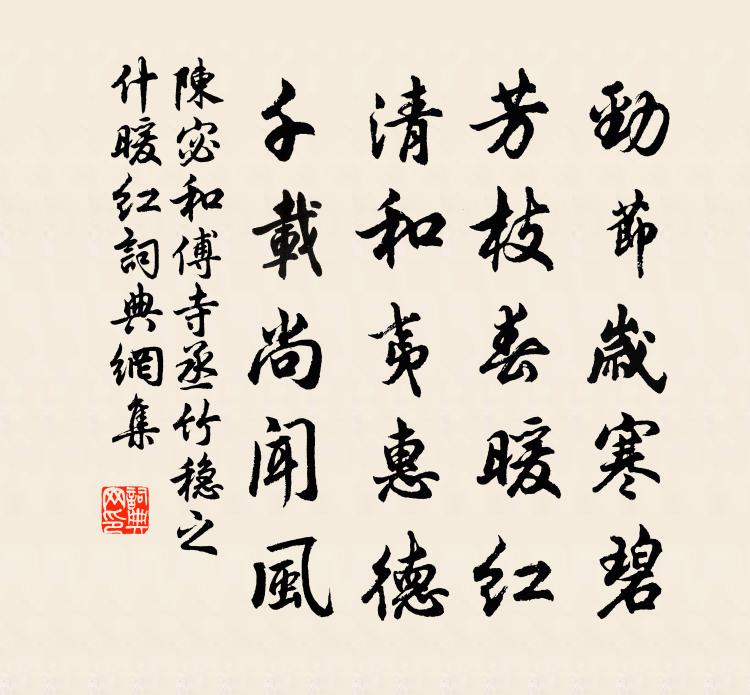 勁節歲寒碧
芳枝春暖紅
清和夷惠德
千載尚聞風
陳宓和傅寺丞竹穏之
什暖红詞典網集
詞典网印